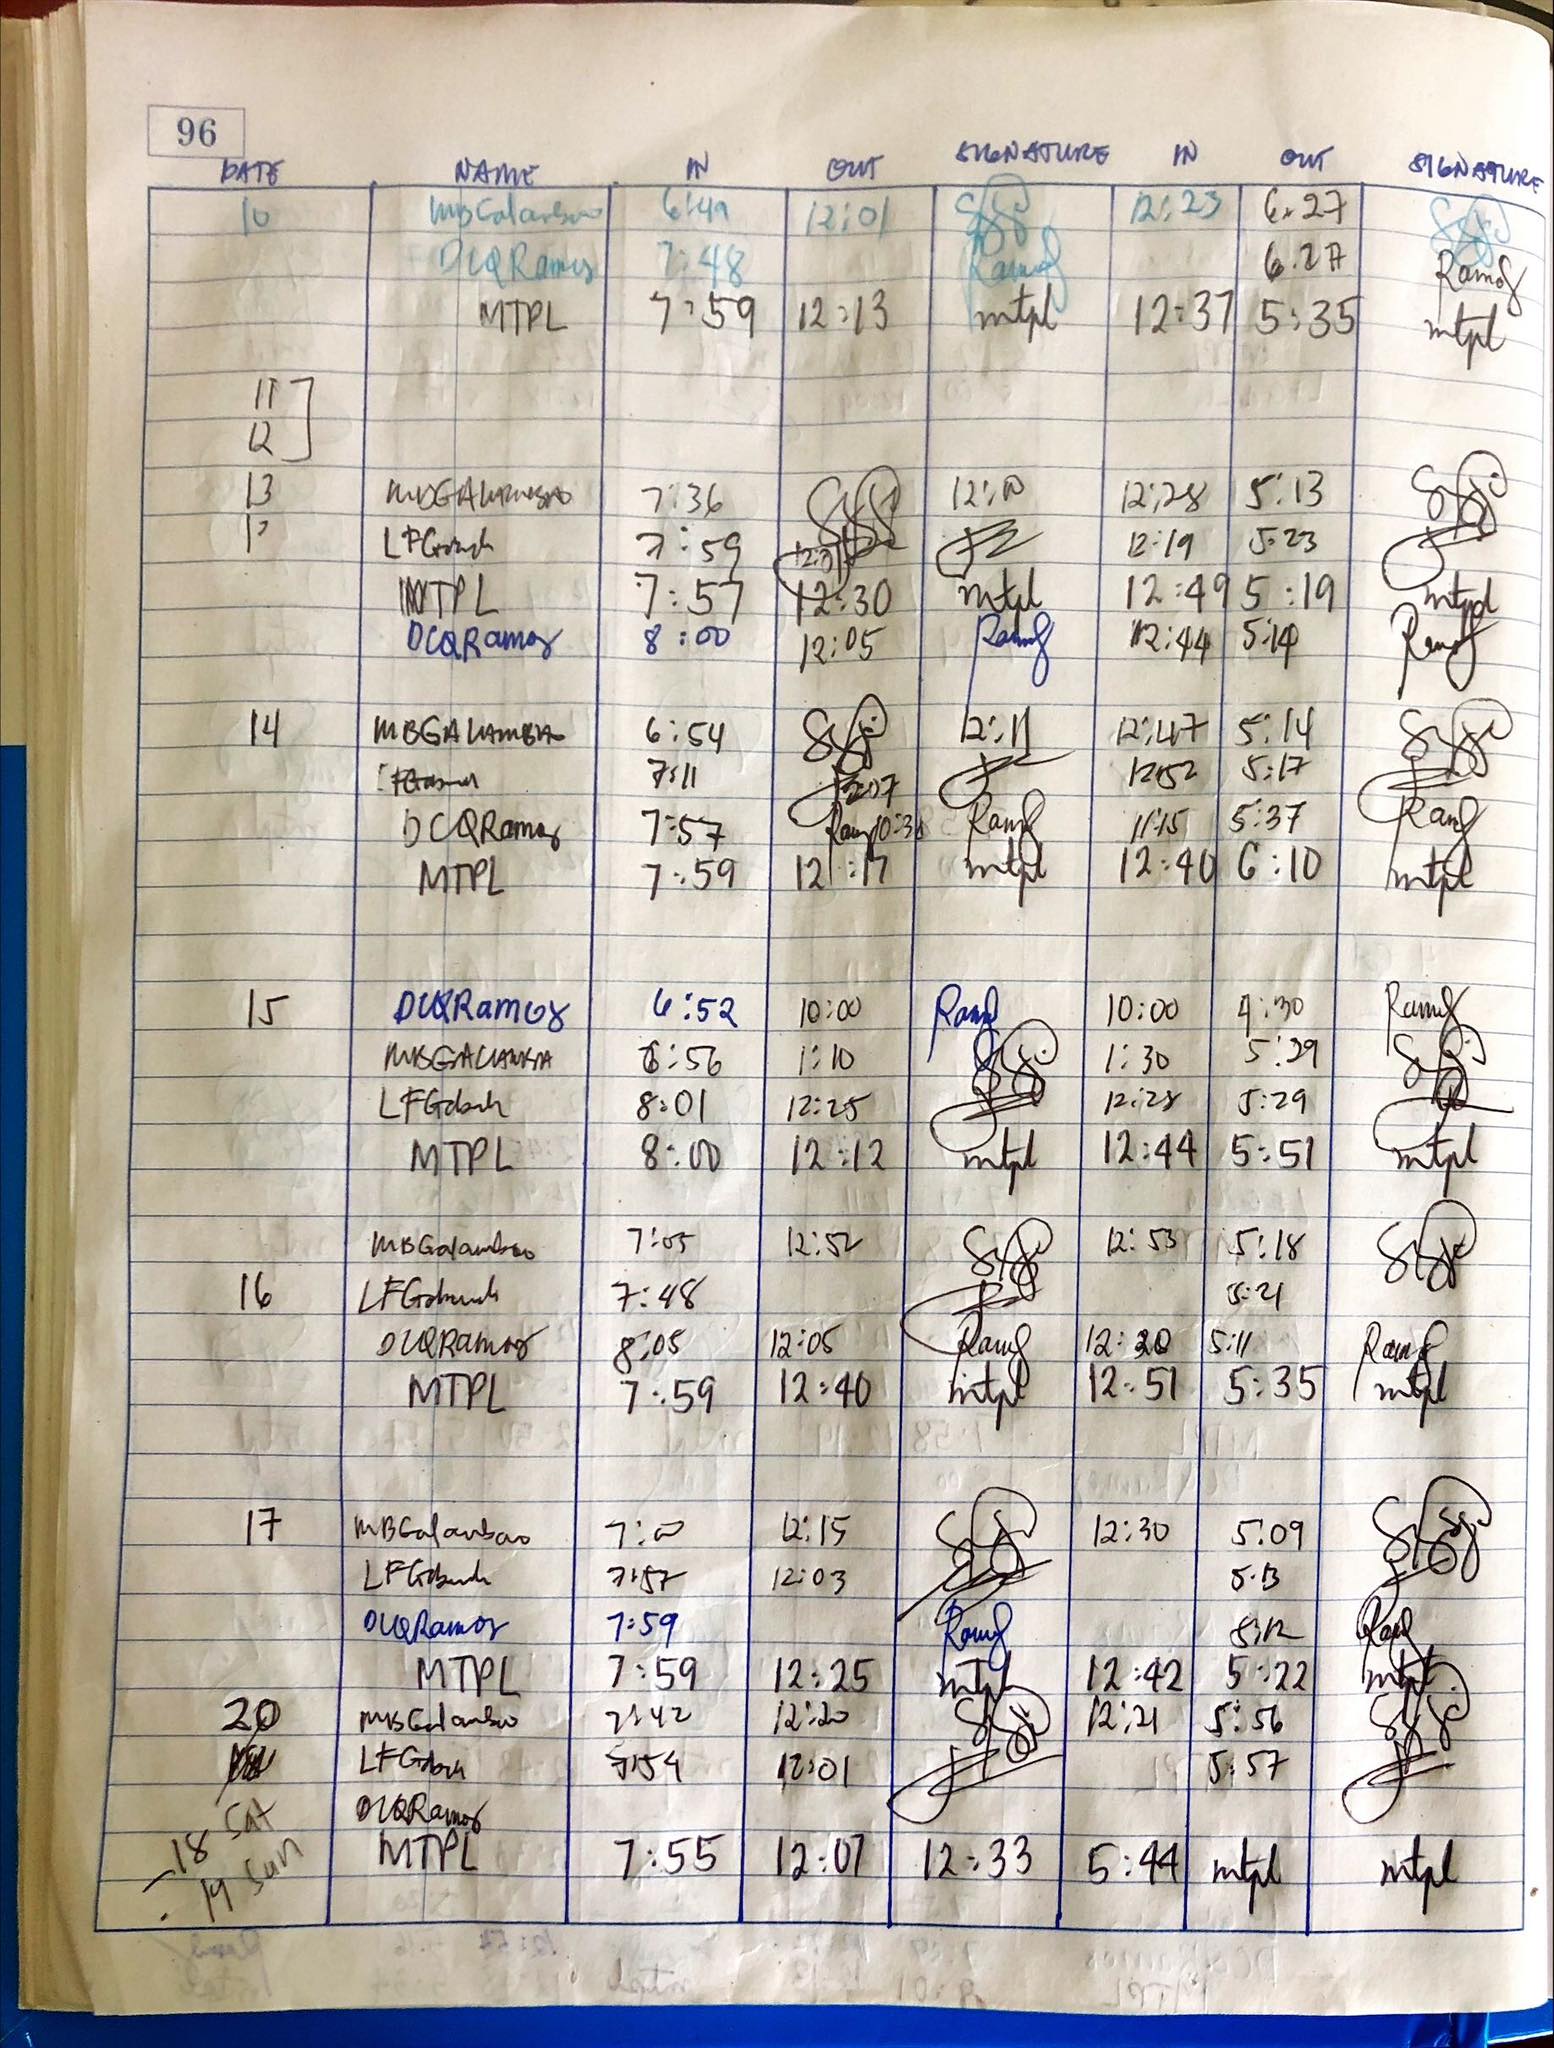 96
DATE NAME IN OUT SIGNATURE IN OUT SIGNATURE
10 MBGalambao 6:49 12:01 12:23 6:27
DCQRamos 7:48 Ramos 6:27 Ramos
MTPL 7:59 12:13 mtpl 12:37 5:35 mtpl
11
12
13 MBGALAMBAO 7:36 12:10 12:28 5:13
LFG 7:59 12:01 12:19 5:23
MTPL 7:57 12:30 mtpl 12:49 5:19 mtpl
DCQRamos 8:00 12:05 Ramos 12:44 5:14 Ramos
14 MBGALAMBA 6:54 12:11 12:47 5:14
7:11 12:07 12:52 5:17
DCQRamos 7:57 Ramos 10:30 Ramos 11:15 5:37 Ramos
MTPL 7:59 12:17 mtpl 12:40 6:10 mtpl
15 DCQRamos 6:52 10:00 Ramos 10:00 4:30 Ramos
MBGALAMBA 6:56 1:10 1:30 5:29
LFG 8:01 12:25 12:28 5:29
MTPL 8:00 12:12 mtpl 12:44 5:51 mtpl
MBGalambao 7:05 12:52 12:53 5:18
16 LFG 7:48 5:21
DCQRamos 8:05 12:05 Ramos 12:20 5:11 Ramos
MTPL 7:59 12:40 mtpl 12:51 5:35 mtpl
17 MBGalambao 7:00 12:15 12:30 5:09
LFG 7:57 12:03 5:13
DCQRamos 7:59 Ramos 5:12 Ramos
MTPL 7:59 12:25 mtpl 12:42 5:22 mtpl
20 MBGalambao 7:42 12:20 12:21 5:56
LFG 7:54 12:01 5:57
SAT DCQRamos
18 MTPL 7:55 12:07 12:33 5:44 mtpl mtpl
19 Sun